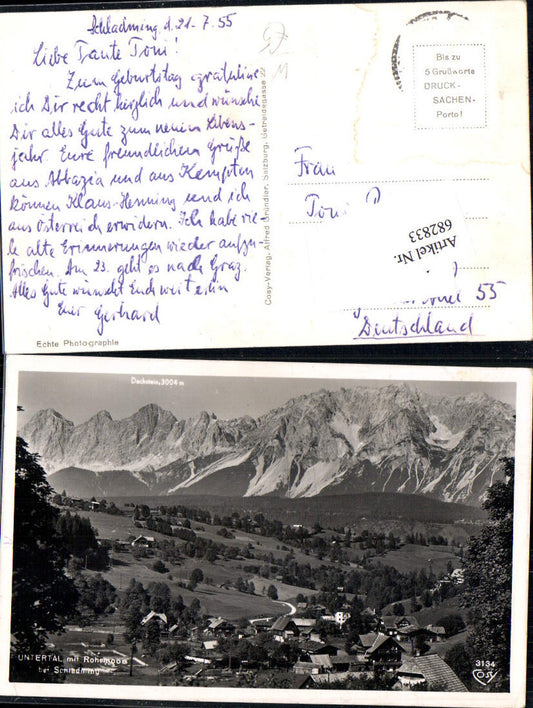 Schladming, d. 21-7.55
Liebe Tante Toni!
Zum Geburtstag gratuliere
ich Dir recht herzlich und wünsche
Dir alles Gute zum neuen Lebens-
jahr. Eure freundlichen Grüße
aus Abbazia und aus Kempten
können Klaus-Henning und ich
aus Österreich erwidern. Ich habe vie-
le alte Erinnerungen wieder aufzu-
frischen. Am 23. geht es nach Graz.
Alles Gute wünscht Euch weiterhin
Euer Gerhard
Echte Photographie
Cosy-Verlag, Alfred Gründler, Salzburg, Getreidegasse 22
Bis zu
5 Grußworte
DRUCK-
SACHEN-
Porto!
Frau
Toni
Artikel Nr.
682833
55
Deutschland
Dachstein, 3004 m
UNTERTAL mit Rohrmoos
bei Schladming
3134